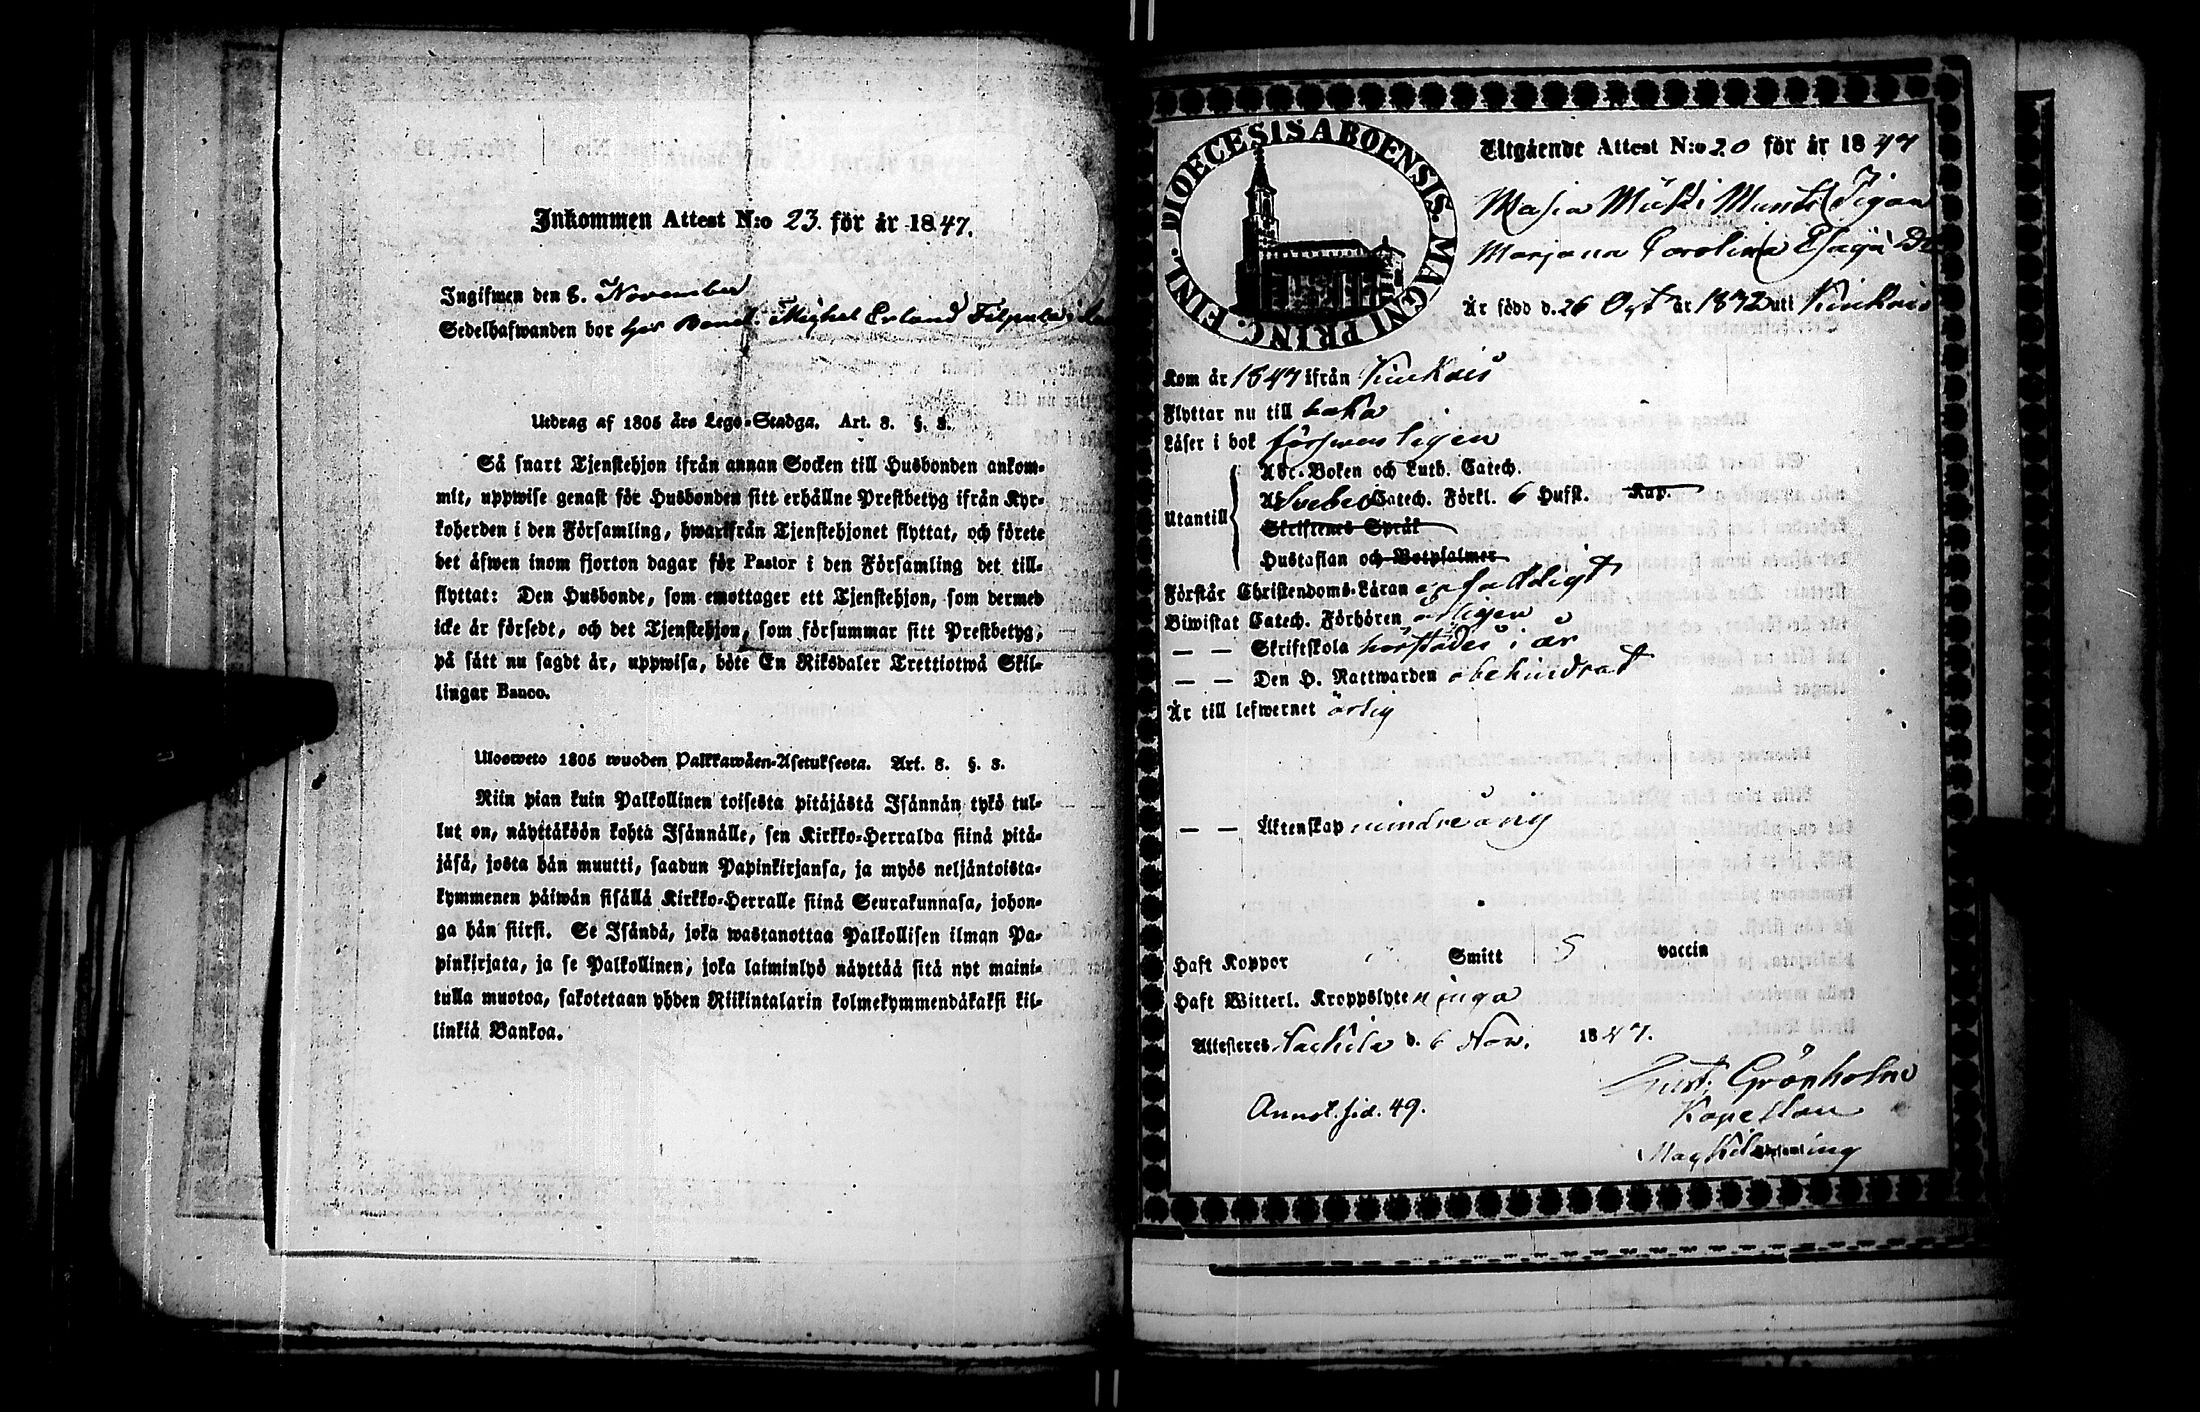 Inkommen Attest N:o 23. för år 1847.
Ingifwen den 8. November
Sedelhafwanden bor hos Bond. Michel Erland Filpula i
Utdrag af 1805 års Lego-Stadga. Art. 3. §. 3.
Så snart Tjenstehjon ifrån annan Socken till Husbonden ankom-
mit, uppwise genast för Husbonden sitt erhållne Prestbetyg ifrån Kyr-
koherden i den Församling, hwarifrån Tjenstehjonet flyttat, och förete
det äfwen inom fjorton dagar för Pastor i den Församling det till-
flyttat: Den Husbonde, som emottager ett Tjenstehjon, som dermed
icke är försedt, och det Tjenstehjon, som försummar sitt Prestbetyg,
på sätt nu sagdt är, uppwisa, böte En Riksdaler Trettiotwå Skil-
lingar Banco.
Ulosweto 1805 wuoden Palkkawäen-Asetuksesta. Art. 3. §. 3.
Niin pian kuin Palkollinen toisesta pitäjästä Isännän tykö tul-
lut on, näyttäköön kohta Isännälle, sen Kirkko-Herralda siinä pitä-
jäsä, josta hän muutti, saadun Papinkirjansa, ja myös neljäntoista-
kymmenen päiwän sisällä Kirkko-Herralle siinä Seurakunnasa, johon-
ga hän siirsi. Se Isändä, joka wastanottaa Palkollisen ilman Pa-
pinkirjata, ja se Palkollinen, joka laiminlyö näyttää sitä nyt maini-
tulla muotoa, sakotetaan yhden Riikintalarin kolmekymmendäkaksi kil-
linkiä Bankoa.
DIOECESIS ABOENSIS. MAGNI PRINC. FINL.
Utgående Attest N:o 20 för år 1847
Marjana Carolina
Är född d. 26 år 18 uti
Kom år 1847 ifrån
Flyttar nu till
Läser i bok försvarligen
Utantill
Abc-Boken och Luth. Catech.
Af Svebei Catech. Förkl. 6 Hufst. Kap.
Skriftenes Språk
Hustaflan och Botpsalmer
Förstår Christendoms-Läran enfaldigt
Biwistat Catech. Förhören årligen
— — Skriftskola härstädes i år
— — Den H. Nattwarden obehindrad
Är till lefwernet ärlig
— — Äktenskap minderårig
Haft Koppor Smitt vaccin
Haft Witterl. Kroppslyte n inga
Attesteres d. 6 Nov. 1847.
Gust. Grönholm
Kapellan
Annot. sid. 49.